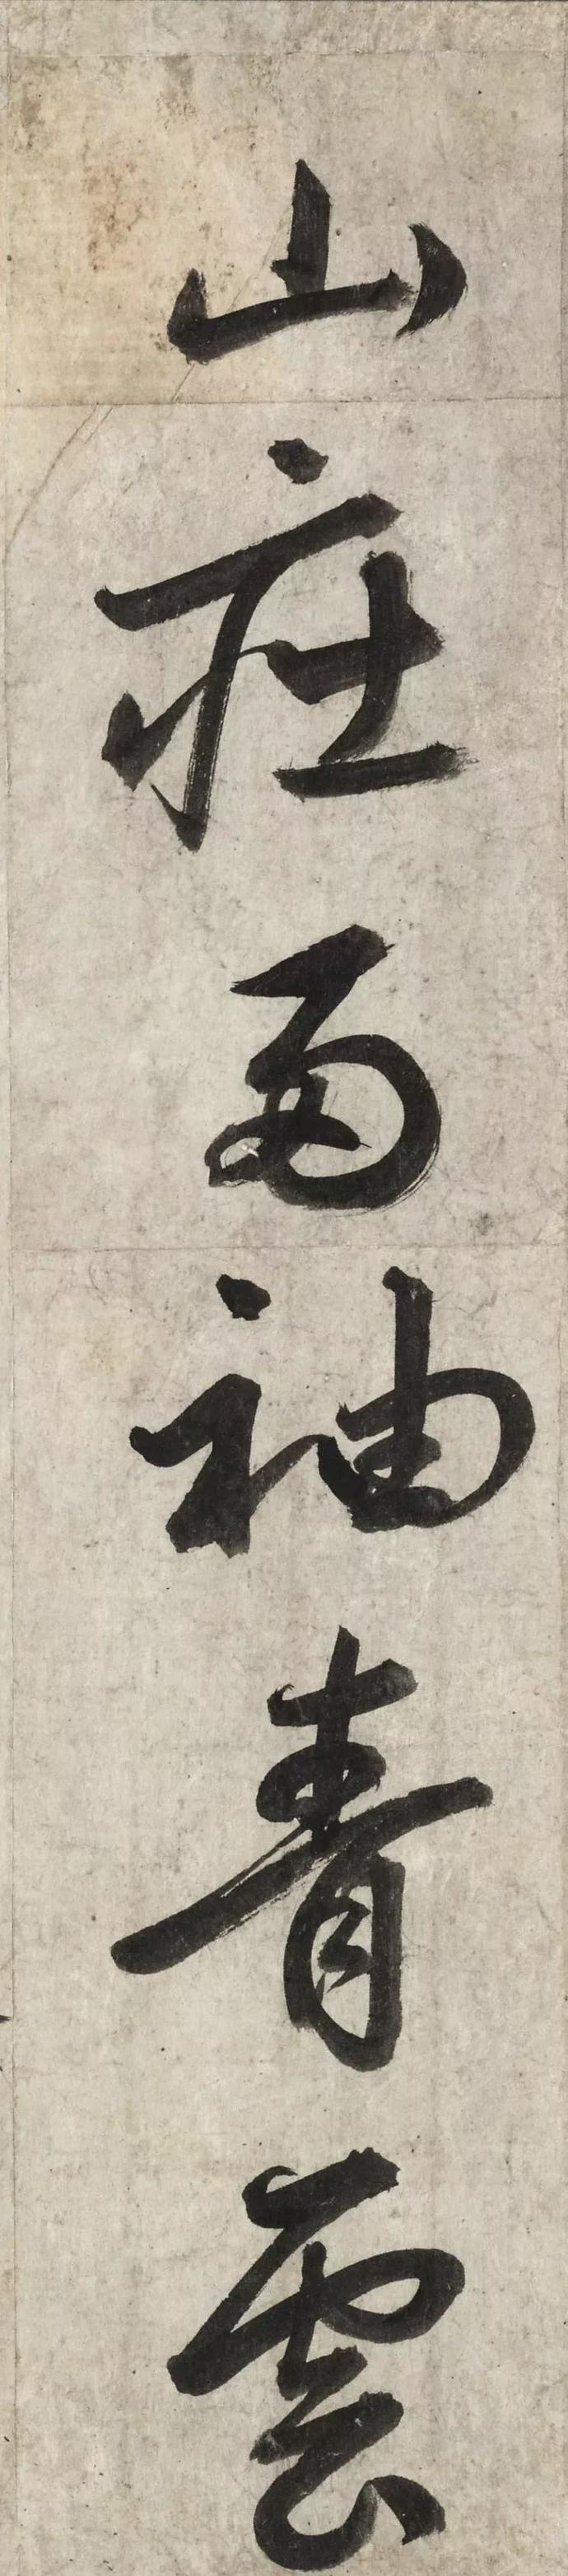 山莊雨袖青雲